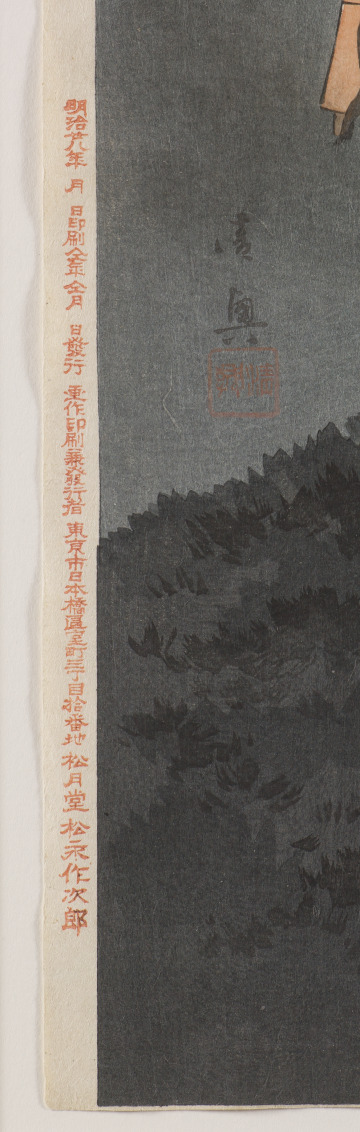 明治廿八年 月 日印刷仝年仝月 日發行 画作印刷兼發行者 東京市日本橋區室町三丁目拾番地 松月堂 松永作次郎
清興